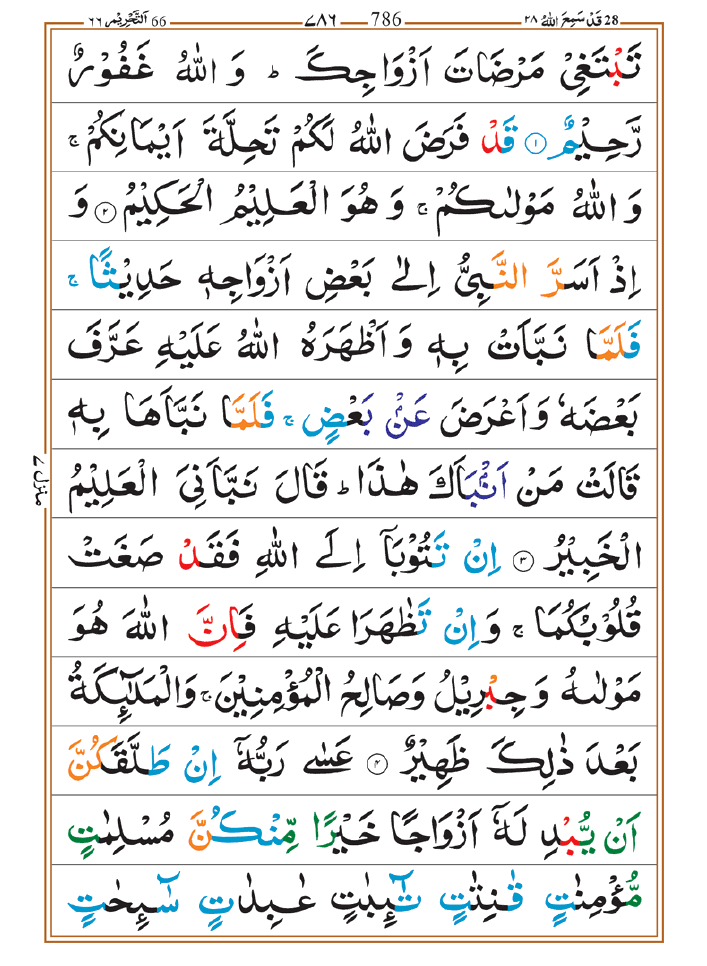 28 قَدْ سَمِعَ اللّٰهُ ٢٨ 786 ٧٨٦ 66 اَلتَّحْرِيْم ٦٦
تَبْتَغِيْ مَرْضَاتَ اَزْوَاجِكَ ؕ وَ اللّٰهُ غَفُوْرٌ
رَّحِيْمٌ ۝١ قَدْ فَرَضَ اللّٰهُ لَكُمْ تَحِلَّةَ اَيْمَانِكُمْ ۚ
وَ اللّٰهُ مَوْلٰىكُمْ ۚ وَ هُوَ الْعَلِيْمُ الْحَكِيْمُ ۝٢ وَ
اِذْ اَسَرَّ النَّبِيُّ اِلٰى بَعْضِ اَزْوَاجِهٖ حَدِيْثًا ۚ
فَلَمَّا نَبَّاَتْ بِهٖ وَ اَظْهَرَهُ اللّٰهُ عَلَيْهِ عَرَّفَ
بَعْضَهٗ وَ اَعْرَضَ عَنْۢ بَعْضٍ ۚ فَلَمَّا نَبَّاَهَا بِهٖ
قَالَتْ مَنْ اَنْۢبَاَكَ هٰذَا ؕ قَالَ نَبَّاَنِيَ الْعَلِيْمُ
الْخَبِيْرُ ۝٣ اِنْ تَتُوْبَاۤ اِلَى اللّٰهِ فَقَدْ صَغَتْ
قُلُوْبُكُمَا ۚ وَ اِنْ تَظٰهَرَا عَلَيْهِ فَاِنَّ اللّٰهَ هُوَ
مَوْلٰىهُ وَ جِبْرِيْلُ وَ صَالِحُ الْمُؤْمِنِيْنَ ۚ وَ الْمَلٰٓئِكَةُ
بَعْدَ ذٰلِكَ ظَهِيْرٌ ۝٤ عَسٰى رَبُّهٗۤ اِنْ طَلَّقَكُنَّ
اَنْ يُّبْدِلَهٗۤ اَزْوَاجًا خَيْرًا مِّنْكُنَّ مُسْلِمٰتٍ
مُّؤْمِنٰتٍ قٰنِتٰتٍ تٰٓئِبٰتٍ عٰبِدٰتٍ سٰٓئِحٰتٍ
منزل ٧